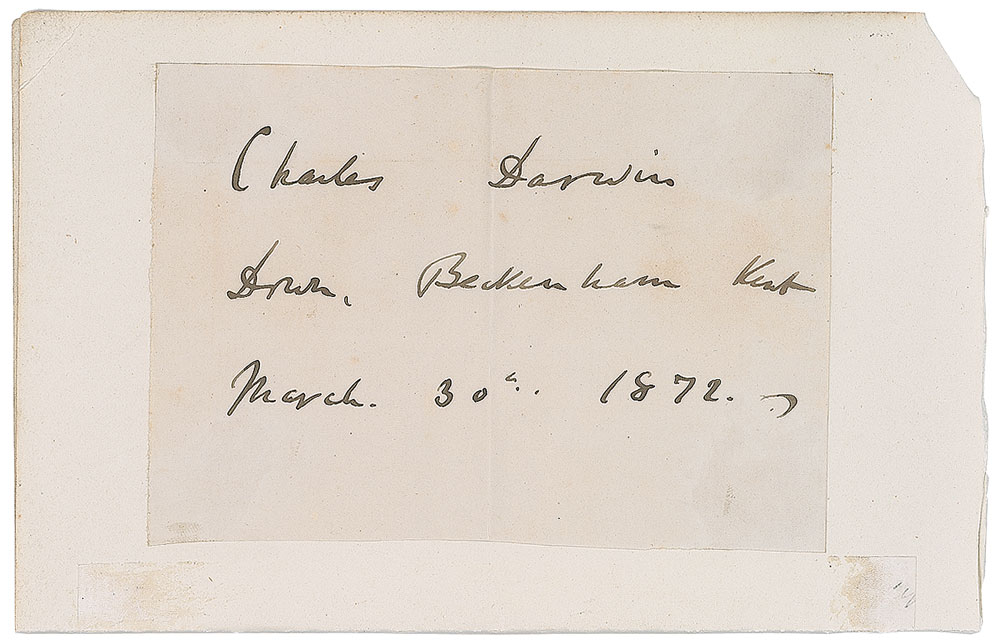 Charles Darwin
Down, Beckenham Kent
March. 30th. 1872.